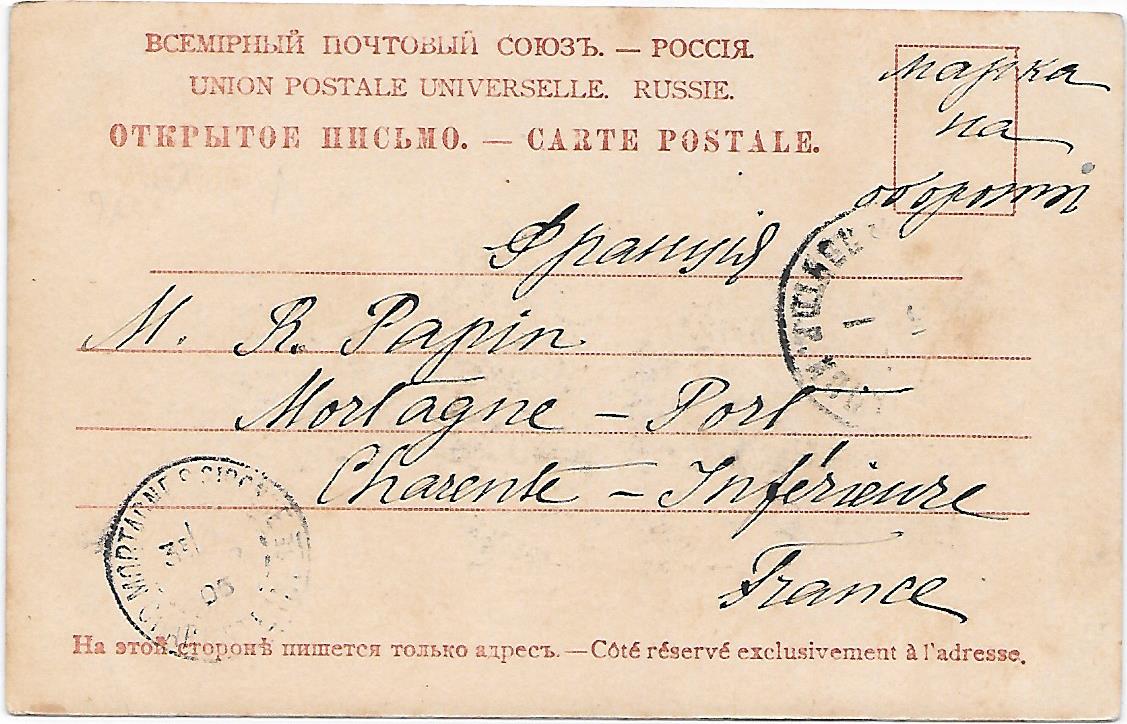 ВСЕМІРНЫЙ ПОЧТОВЫЙ СОЮЗЪ. — РОССІЯ.
UNION POSTALE UNIVERSELLE. RUSSIE.
ОТКРЫТОЕ ПИСЬМО. — CARTE POSTALE.
марка
на
оборотѣ
Франція
M. R. Papin
Mortagne - Port
Charente - Inférieure
France
MORTAGNE S GIRONDE
03
На этой сторонѣ пишется только адресъ. — Côté réservé exclusivement à l'adresse.